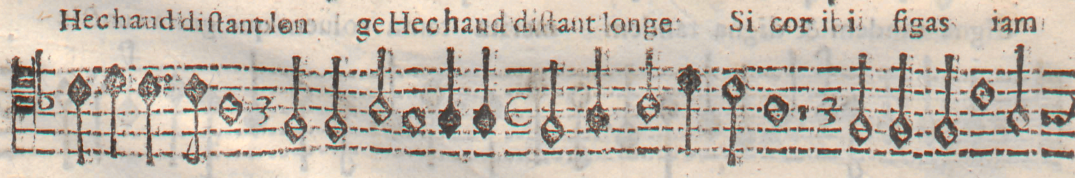 Hec haud diſtant lon ge Hec haud diſtant longe Si cor ibi i figas iam